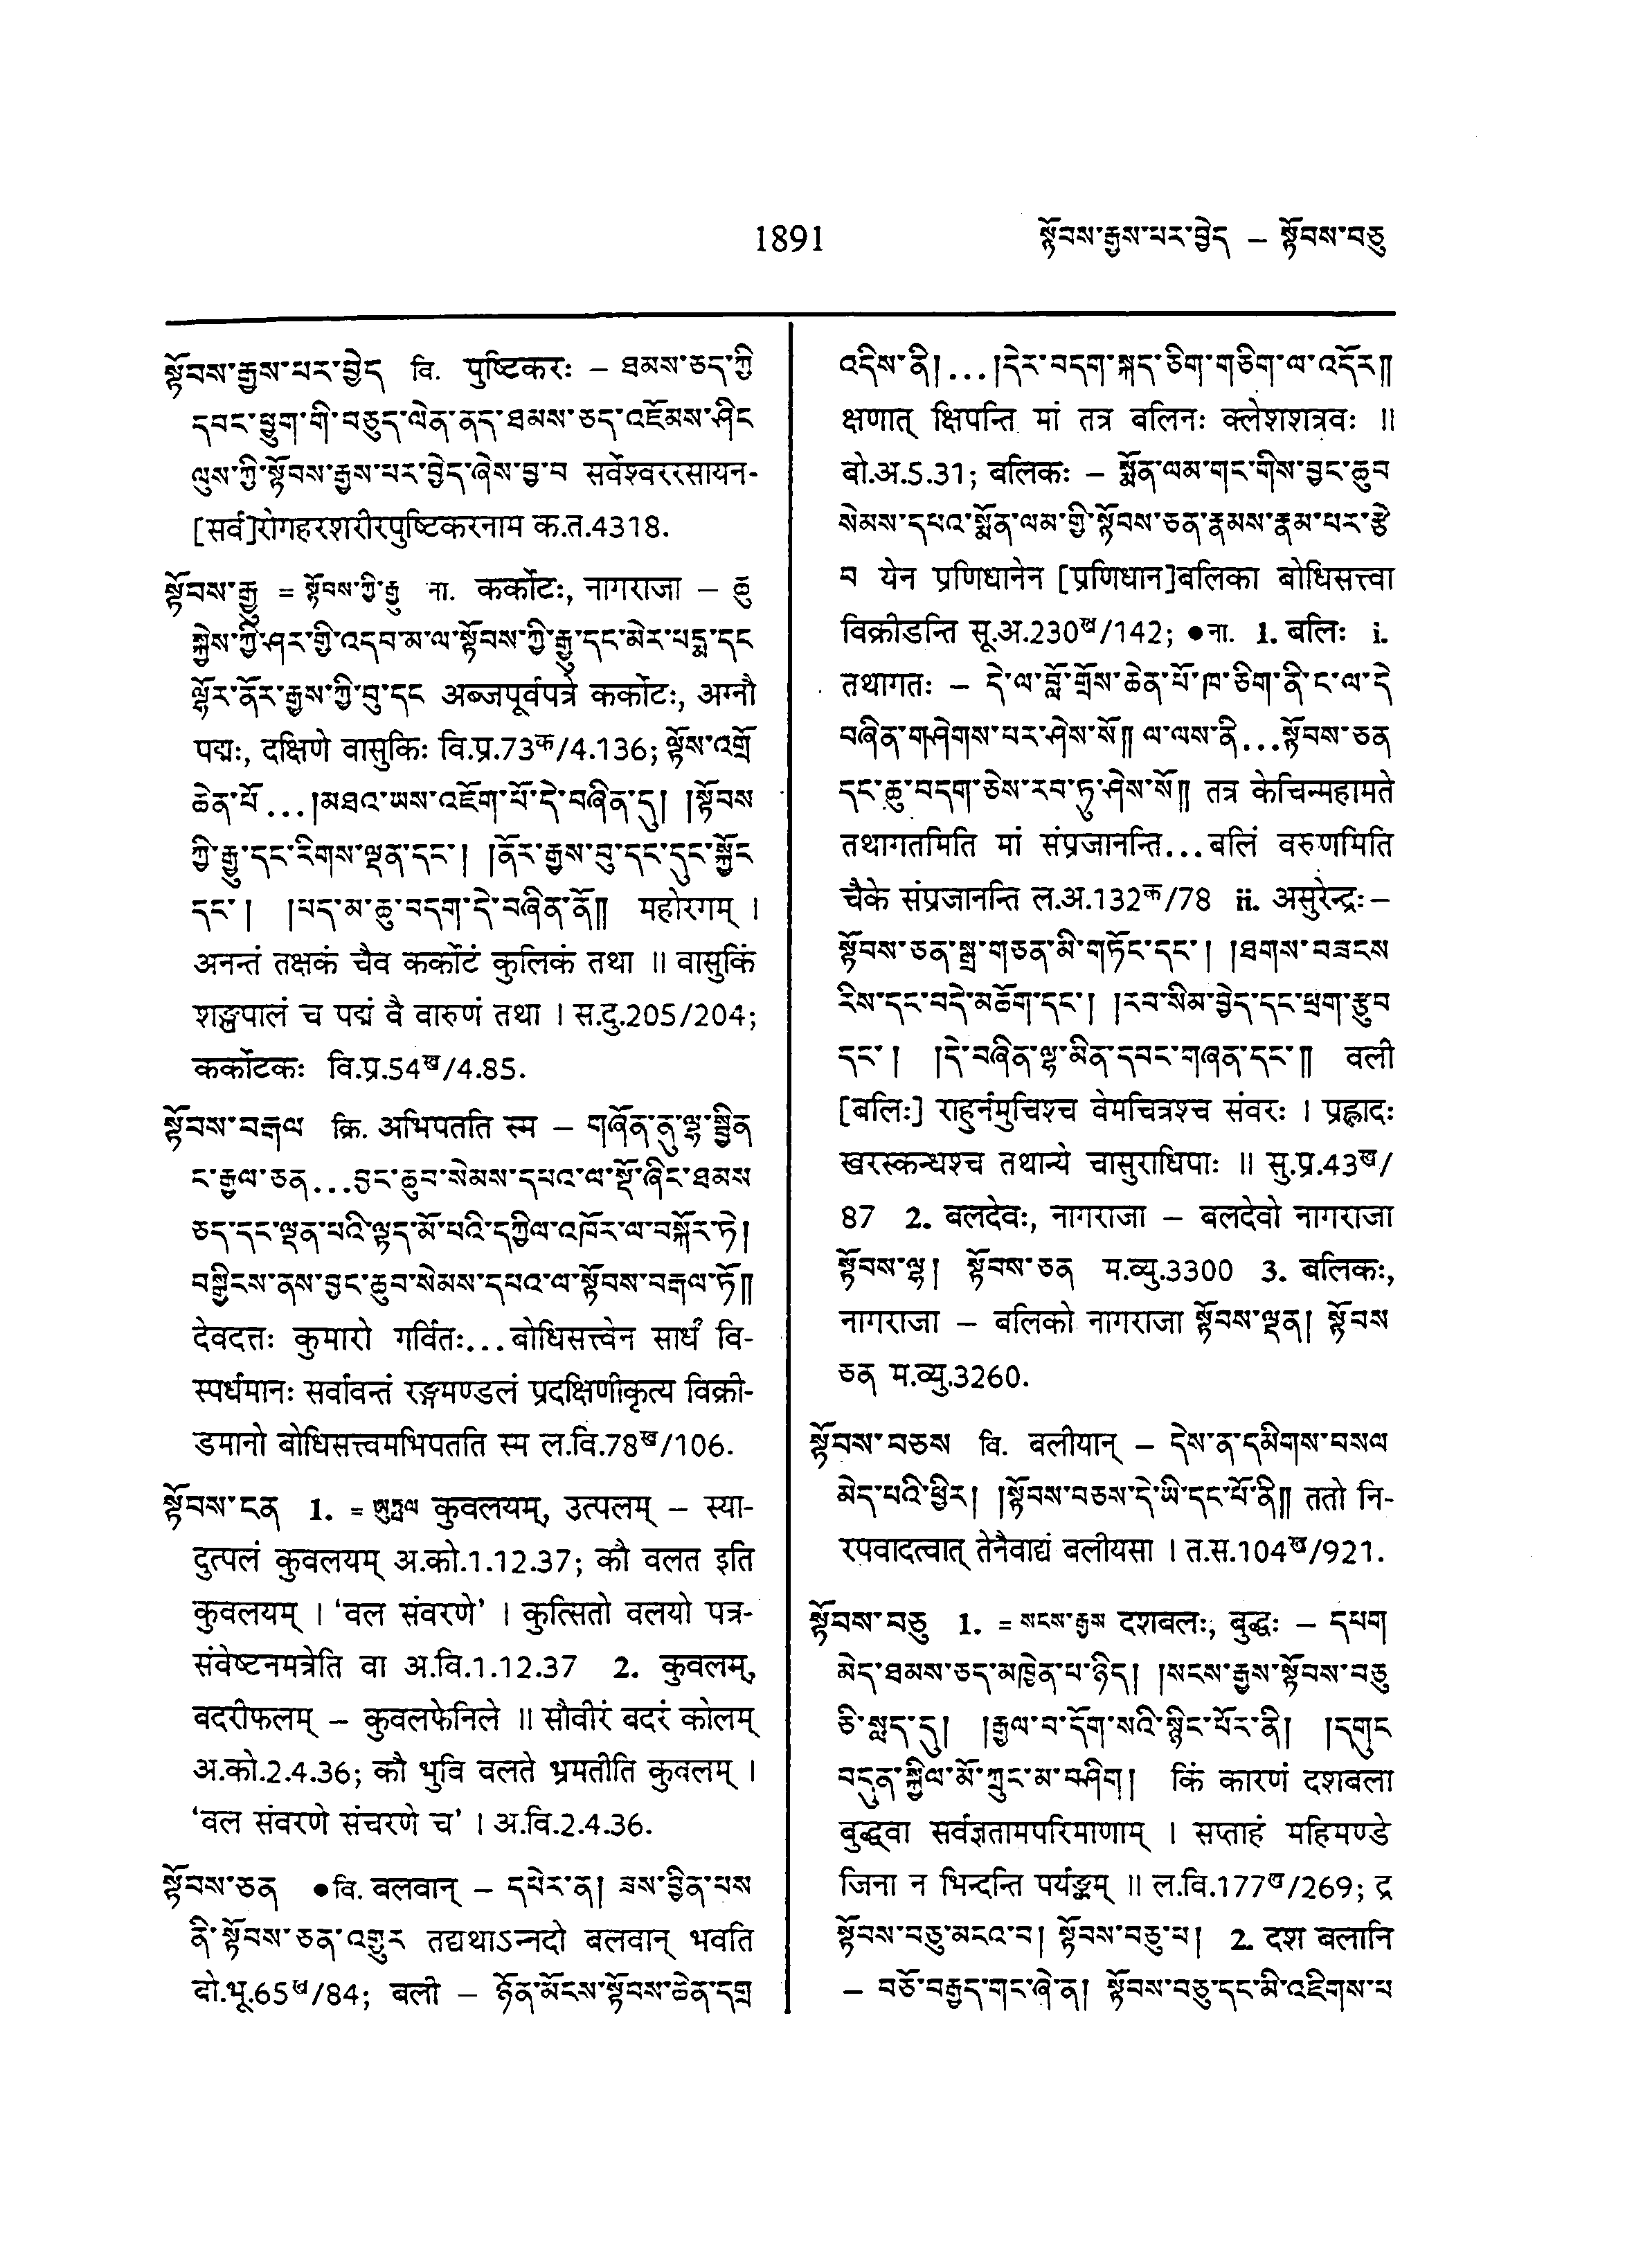 1891
སྟོབས་རྒྱས་པར་བྱེད – སྟོབས་བཅུ
སྟོབས་རྒྱས་པར་བྱེད वि. पुष्टिकरः – ཐམས་ཅད་ཀྱི
དབང་ཕྱུག་གི་བཅུད་ལེན་ནད་ཐམས་ཅད་འཇོམས་ཤིང
ལུས་ཀྱི་སྟོབས་རྒྱས་པར་བྱེད་ཞེས་བྱ་བ सर्वेश्वररसायन-
[सर्व]रोगहरशरीरपुष्टिकरनाम क.त.4318.
སྟོབས་རྒྱུ = སྟོབས་ཀྱི་རྒྱུ ना. कर्कोटः, नागराजा – ཆུ
སྐྱེས་ཀྱི་ཤར་གྱི་འདབ་མ་ལ་སྟོབས་ཀྱི་རྒྱུ་དང་མེར་པདྨ་དང
ལྷོར་ནོར་རྒྱས་ཀྱི་བུ་དང अब्जपूर्वपत्रे कर्कोटः, अग्नौ
पद्मः, दक्षिणे वासुकिः वि.प्र.73क/4.136; ལྟོས་འགྲོ
ཆེན་པོ...།མཐའ་ཡས་འཇོག་པོ་དེ་བཞིན་དུ། །སྟོབས
ཀྱི་རྒྱུ་དང་རིགས་ལྡན་དང་། །ནོར་རྒྱས་བུ་དང་དུང་སྐྱོང
དང་། །པད་མ་ཆུ་བདག་དེ་བཞིན་ནོ༎ महोरगम् ।
अनन्तं तक्षकं चैव कर्कोटं कुलिकं तथा ॥ वासुकिं
शङ्खपालं च पद्मं वै वारुणं तथा । स.दु.205/204;
कर्कोटकः वि.प्र.54ख/4.85.
སྟོབས་བརྒལ क्रि. अभिपतति स्म – གཞོན་ནུ་ལྷ་སྦྱིན
ང་རྒྱལ་ཅན...བྱང་ཆུབ་སེམས་དཔའ་ལ་སྡོ་ཞིང་ཐམས
ཅད་དང་ལྡན་པའི་ལྟད་མོ་པའི་དཀྱིལ་འཁོར་ལ་བསྐོར་ཏེ།
བསྒྱིངས་ནས་བྱང་ཆུབ་སེམས་དཔའ་ལ་སྟོབས་བརྒལ་ཏོ༎
देवदत्तः कुमारो गर्वितः...बोधिसत्त्वेन सार्धं वि-
स्पर्धमानः सर्वावन्तं रङ्गमण्डलं प्रदक्षिणीकृत्य विक्री-
डमानो बोधिसत्त्वमभिपतति स्म ल.वि.78ख/106.
སྟོབས་ངན 1. = ཨུཏྤལ कुवलयम्, उत्पलम् – स्या-
दुत्पलं कुवलयम् अ.को.1.12.37; कौ वलत इति
कुवलयम् । ‘वल संवरणे’ । कुत्सितो वलयो पत्र-
संवेष्टनमत्रेति वा अ.वि.1.12.37 2. कुवलम्,
बदरीफलम् – कुवलफेनिले ॥ सौवीरं बदरं कोलम्
अ.को.2.4.36; कौ भुवि वलते भ्रमतीति कुवलम् ।
‘वल संवरणे संचरणे च’ । अ.वि.2.4.36.
སྟོབས་ཅན ●वि. बलवान् – དཔེར་ན། ཟས་བྱིན་པས
ནི་སྟོབས་ཅན་འགྱུར तद्यथाऽन्नदो बलवान् भवति
बो.भू.65ख/84; बली – ཉོན་མོངས་སྟོབས་ཆེན་དགྲ
འདིས་ནི།...།དེར་བདག་སྐད་ཅིག་གཅིག་ལ་འདོར༎
क्षणात् क्षिपन्ति मां तत्र बलिनः क्लेशशत्रवः ॥
बो.अ.5.31; बलिकः – སྨོན་ལམ་གང་གིས་བྱང་ཆུབ
སེམས་དཔའ་སྨོན་ལམ་གྱི་སྟོབས་ཅན་རྣམས་རྣམ་པར་རྩེ
བ येन प्रणिधानेन [प्रणिधान]बलिका बोधिसत्त्वा
विक्रीडन्ति सू.अ.230ख/142; ●ना. 1. बलिः i.
तथागतः – དེ་ལ་བློ་གྲོས་ཆེན་པོ་ཁ་ཅིག་ནི་ང་ལ་དེ
བཞིན་གཤེགས་པར་ཤེས་སོ༎ ལ་ལས་ནི...སྟོབས་ཅན
དང་ཆུ་བདག་ཅེས་རབ་ཏུ་ཤེས་སོ༎ तत्र केचिन्महामते
तथागतमिति मां संप्रजानन्ति...बलिं वरुणमिति
चैके संप्रजानन्ति ल.अ.132क/78 ii. असुरेन्द्रः –
སྟོབས་ཅན་སྒྲ་གཅན་མི་གཏོང་དང་། །ཐགས་བཟངས
རིས་དང་བདེ་མཆོག་དང་། །རབ་སིམ་བྱེད་དང་ཕྲག་རྩུབ
དང་། །དེ་བཞིན་ལྷ་མིན་དབང་གཞན་དང་༎ वली
[बलिः] राहुर्नमुचिश्च वेमचित्रश्च संवरः । प्रह्लादः
खरस्कन्धश्च तथान्ये चासुराधिपाः ॥ सु.प्र.43ख/
87 2. बलदेवः, नागराजा – बलदेवो नागराजा
སྟོབས་ལྷ། སྟོབས་ཅན म.व्यु.3300 3. बलिकः,
नागराजा – बलिको नागराजा སྟོབས་ལྡན། སྟོབས
ཅན म.व्यु.3260.
སྟོབས་བཅས वि. बलीयान् – དེས་ན་དམིགས་བསལ
མེད་པའི་ཕྱིར། །སྟོབས་བཅས་དེ་ཡི་དང་པོ་ནི༎ ततो नि-
रपवादत्वात् तेनैवाद्यं बलीयसा । त.स.104ख/921.
སྟོབས་བཅུ 1. = སངས་རྒྱས दशबलः, बुद्धः – དཔག
མེད་ཐམས་ཅད་མཁྱེན་པ་ཉིད། །སངས་རྒྱས་སྟོབས་བཅུ
ཅི་སླད་དུ། །རྒྱལ་བ་དོག་སའི་སྙིང་པོར་ནི། །དགུང
བདུན་སྐྱིལ་མོ་ཀྲུང་མ་བཤིག། किं कारणं दशबला
बुद्ध्वा सर्वज्ञतामपरिमाणाम् । सप्ताहं महिमण्डे
जिना न भिन्दन्ति पर्यङ्कम् ॥ ल.वि.177ख/269; द्र
སྟོབས་བཅུ་མངའ་བ། སྟོབས་བཅུ་པ། 2. दश बलानि
– བཅོ་བརྒྱད་གང་ཞེ་ན། སྟོབས་བཅུ་དང་མི་འཇིགས་པ